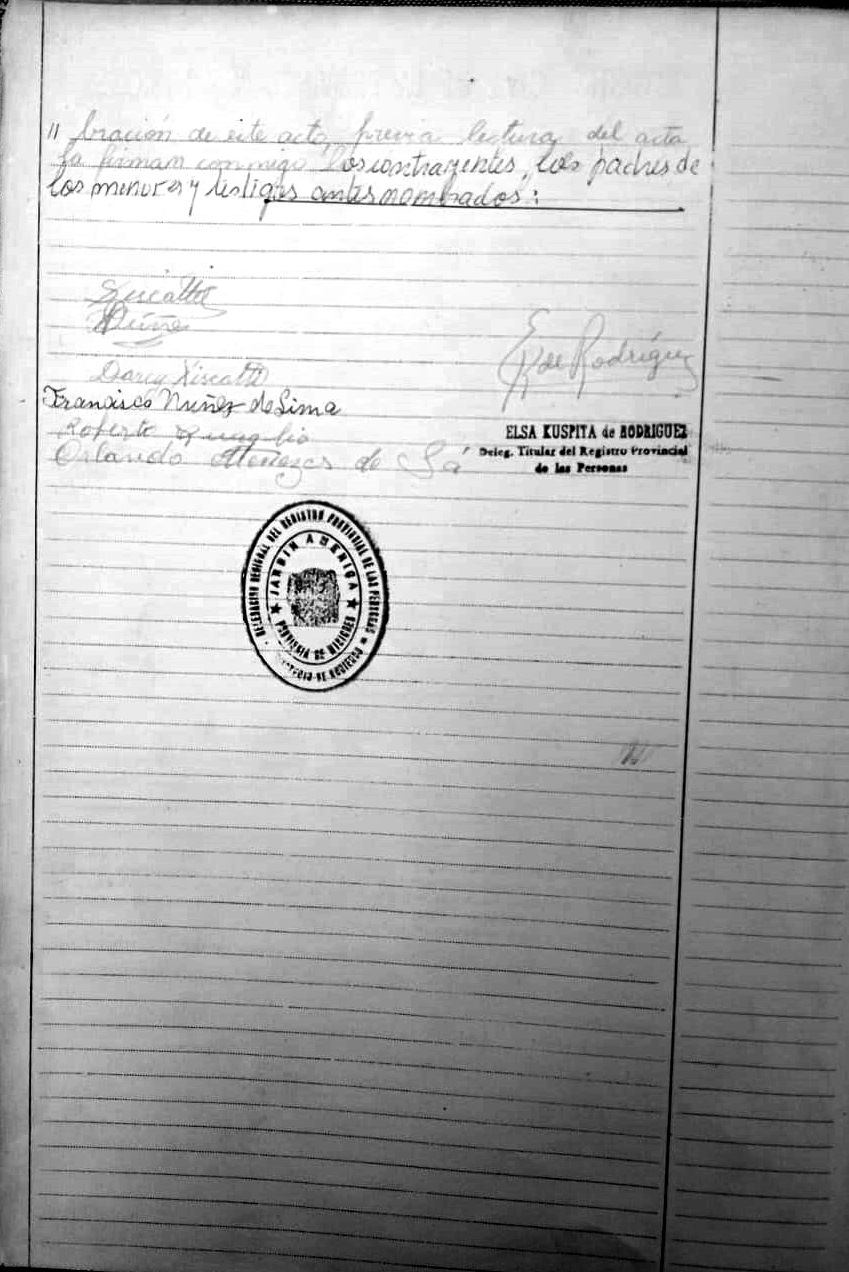 // bración de este acto, previa lectura del acta
la firman conmigo los contrayentes, los padres de
los menores y testigos antes nombrados:
Núñez
E K de Rodríguez
Darcy
Francisco Nuñez de Lima
Roberto
Orlando Menezes de Sá
ELSA KUSPITA de RODRIGUEZ
Deleg. Titular del Registro Provincial
de las Personas
DELEGACION REGIONAL DEL REGISTRO PROVINCIAL DE LAS PERSONAS
JARDIN AMERICA
PROVINCIA DE MISIONES